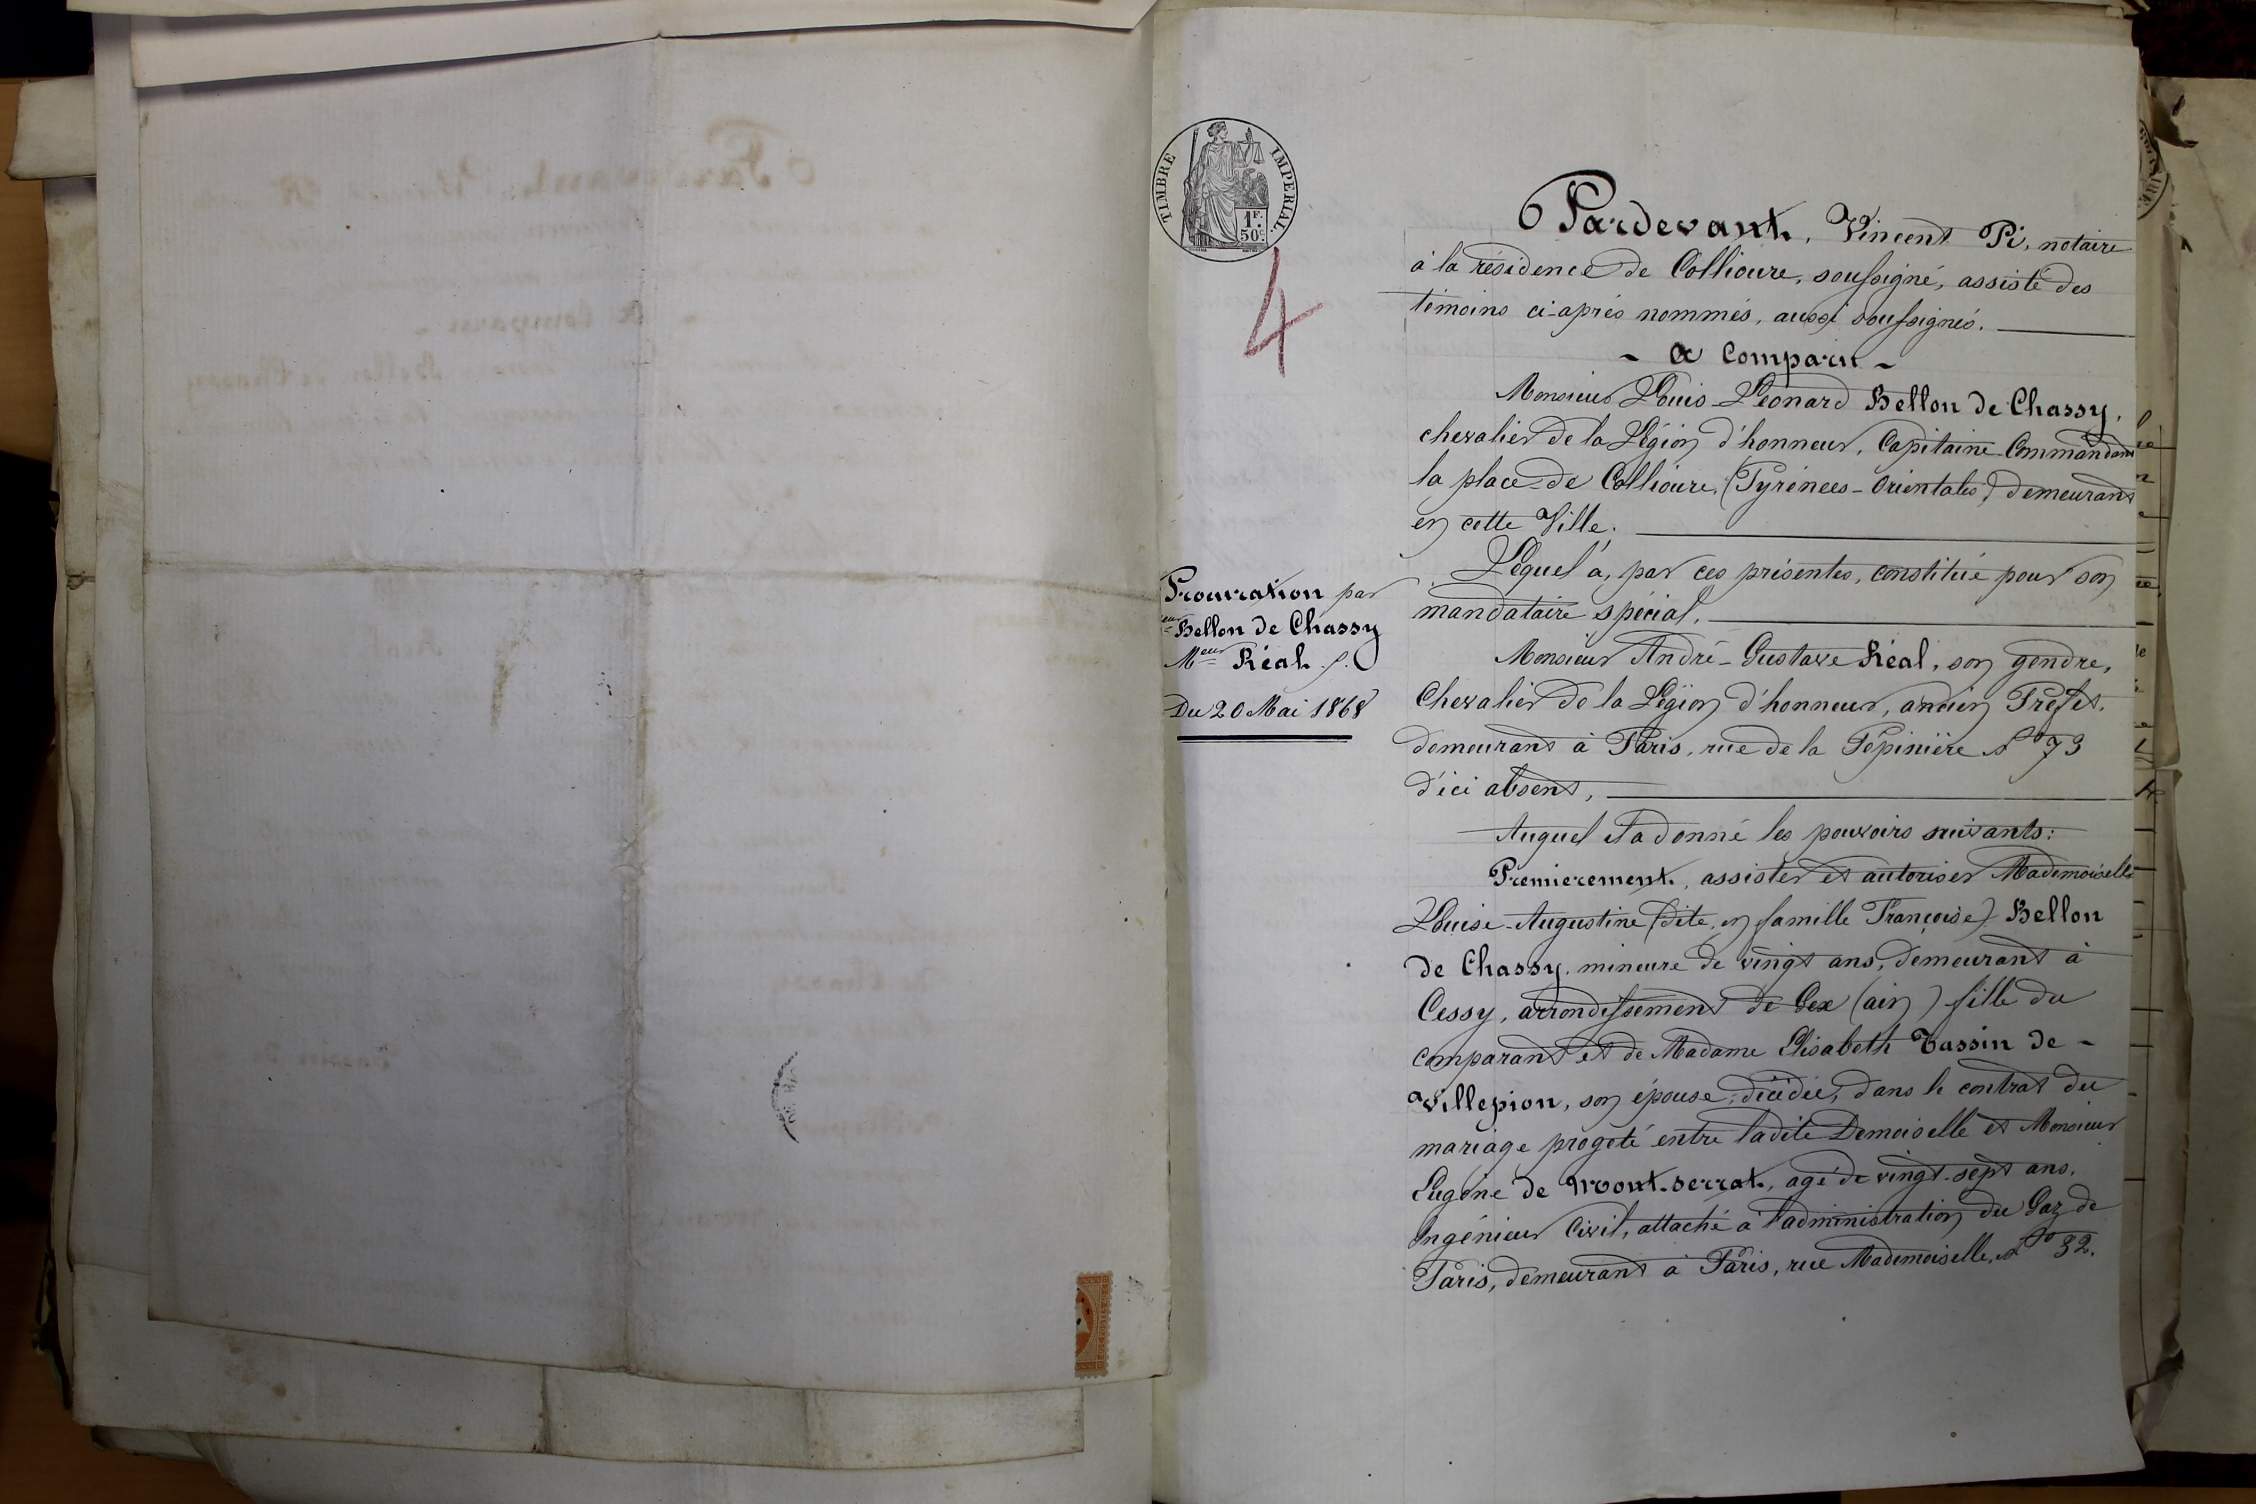 TIMBRE IMPERIAL.
1F.
50C.
4
Pardevant, Vincent Pi, notaire
à la résidence de Collioure, soussigné, assisté des
témoins ci-après nommés, aussi soussignés.
- A Comparu -
Monsieur Louis-Léonard Bellon de Chassy,
chevalier de la Légion d'honneur, Capitaine Commandant
la place de Collioure, (Pyrénées-Orientales) demeurant
en cette Ville.
Lequel a, par ces présentes, constitué pour son
mandataire spécial,
Procuration par
eur Bellon de Chassy
Meur Réal.
Du 20 Mai 1868
Monsieur André-Gustave Réal, son gendre,
Chevalier de la Légion d'honneur, ancien Préfet,
demeurant à Paris, rue de la Pépinière No 73
d'ici absent,
Auquel il a donné les pouvoirs suivants:
Premierement, assister et autoriser Mademoiselle
Louise-Augustine (dite en famille Françoise) Bellon
de Chassy, mineure de vingt ans, demeurant à
Cessy, arrondissement de Gex (ain) fille du
comparant et de Madame Elisabeth Tassin de -
Villepion, son épouse, décédée, dans le contrat du
mariage progeté entre ladite Demoiselle et Monsieur
Eugène de Mont-Serrat, agé de vingt-sept ans,
Ingénieur Civil, attaché à l'administration du Gaz de
Paris, demeurant à Paris, rue Mademoiselle, No 32.